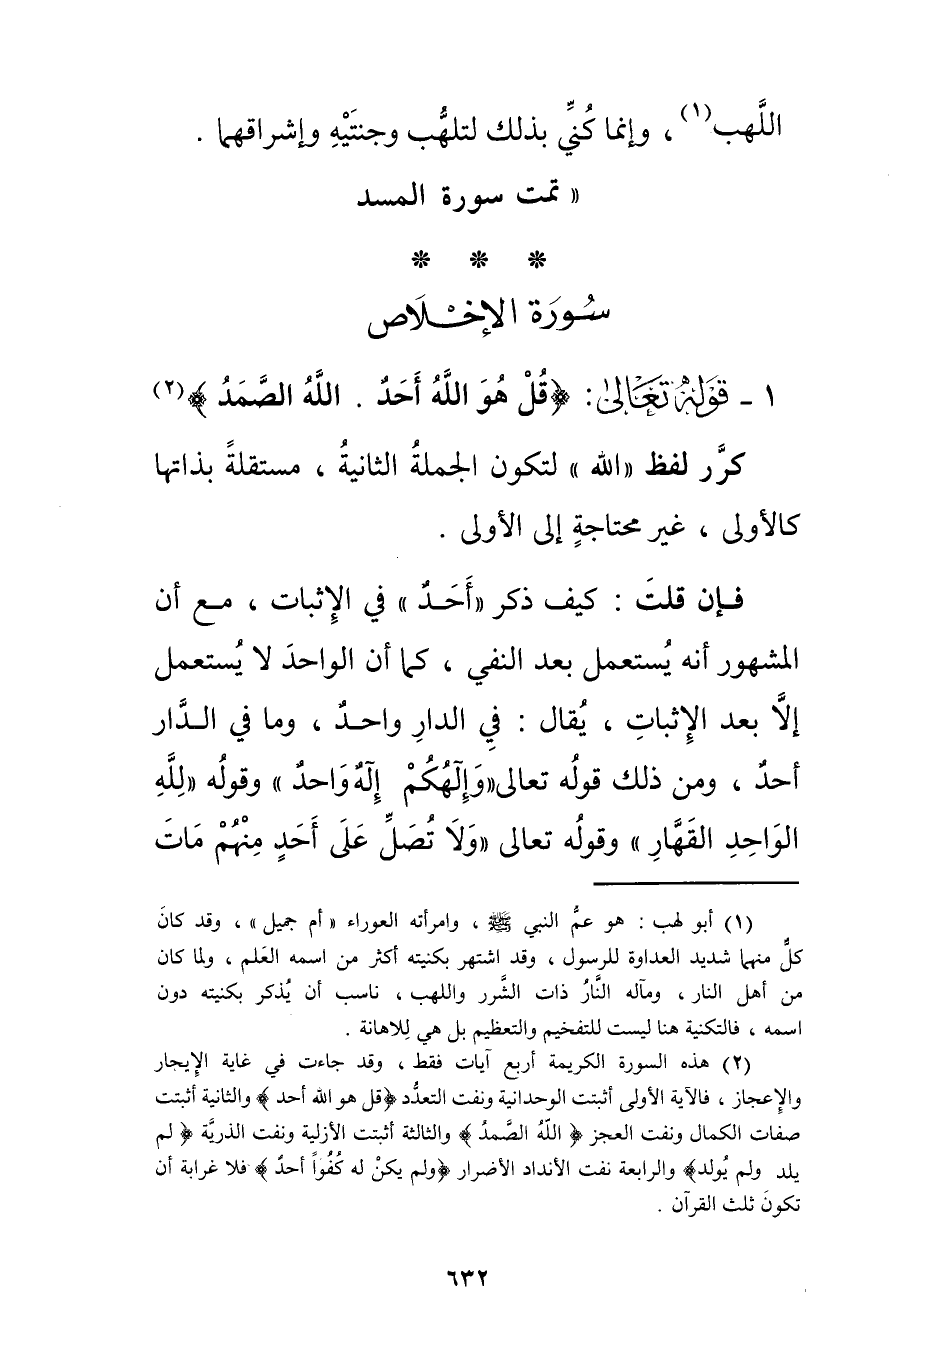 اللَّهب(١) ، وإنما كُنِّي بذلك لتلهُّب وجنتَيْهِ وإشراقهما .
« تمت سورة المسد
* * *
سُورَة الإخْلَاص
١ - قَوْلُهُ تَعَالىٰ : ﴿قُلْ هُوَ اللَّهُ أَحَدٌ . اللَّهُ الصَّمَدُ ﴾(٢)
كرَّر لفظ «الله » لتكون الجملةُ الثانيةُ ، مستقلةً بذاتها
كالأولى ، غير محتاجةٍ إلى الأولى .
فإن قلتَ : كيف ذكر «أَحَدٌ » في الإِثبات ، مع أن
المشهور أنه يُستعمل بعد النفي ، كما أن الواحدَ لا يُستعمل
إلَّا بعد الإِثباتِ ، يُقال : فِي الدارِ واحدٌ ، وما في الدَّار
أحدٌ ، ومن ذلك قولُه تعالى«وَإِلَهُكُمْ إِلَهٌ وَاحدٌ » وقولُه «لِلَّهِ
الوَاحِدِ القَهَّارِ » وقولُه تعالى «وَلَا تُصَلِّ عَلَى أَحَدٍ مِنْهُمْ مَاتَ
(١) أبو لهب : هو عمُّ النبي ﷺ ، وامرأته العوراء « أم جميل » ، وقد كانَ
كلٌّ منهما شديد العداوة للرسول ، وقد اشتهر بكنيته أكثر من اسمه العَلم ، ولما كان
من أهل النار ، ومآله النَّارُ ذات الشَّرر واللهب ، ناسب أن يُذكر بكنيته دون
اسمه ، فالتكنية هنا ليست للتفخيم والتعظيم بل هي لِلاهانة .
(٢) هذه السورة الكريمة أربع آيات فقط ، وقد جاءت في غاية الإِيجار
والإِعجاز ، فالآية الأولى أثبتت الوحدانية ونفت التعدُّد ﴿قل هو الله أحد ﴾ والثانية أثبتت
صفات الكمال ونفت العجز ﴿ اللَّهُ الصَّمدُ ﴾ والثالثة أثبتت الأزلية ونفت الذريَّة ﴿ لم
يلد ولم يُولد﴾ والرابعة نفت الأنداد الأضرار ﴿ولم يكنْ له كُفُواً أحدٌ ﴾ فلا غرابة أن
تكونَ ثلث القرآن .
٦٣٢